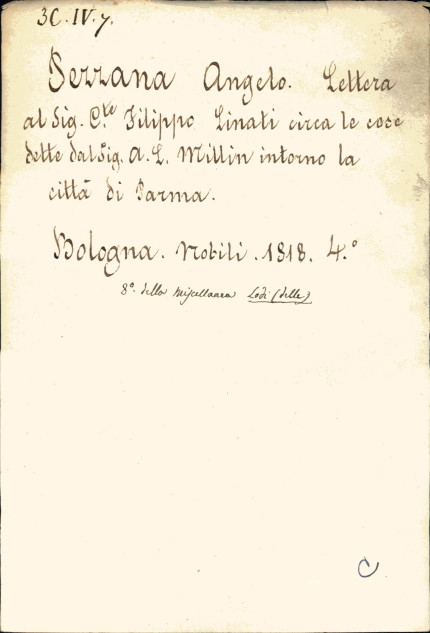 3C. IV. 7.
Pezzana Angelo. Lettera
al Sig. C.te Filippo Linati circa le cose
dette dal Sig. A. L. Millin intorno la
città di Parma.
Bologna. Nobili. 1818. 4.°
8°. della Miscellanea Lodi (delle)
C